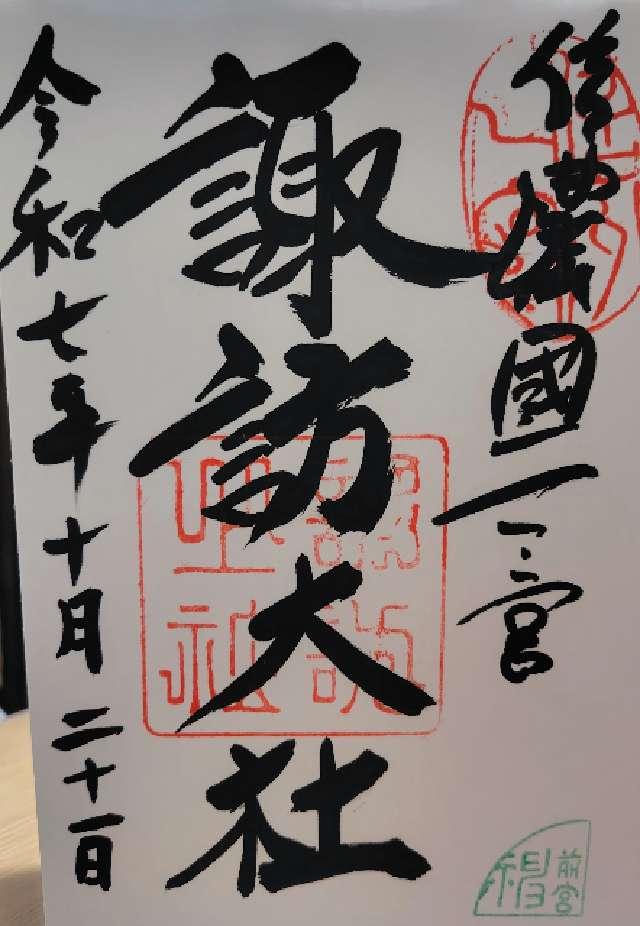 信濃國一之宮
諏訪大社
令和七年十月二十一日
前宮